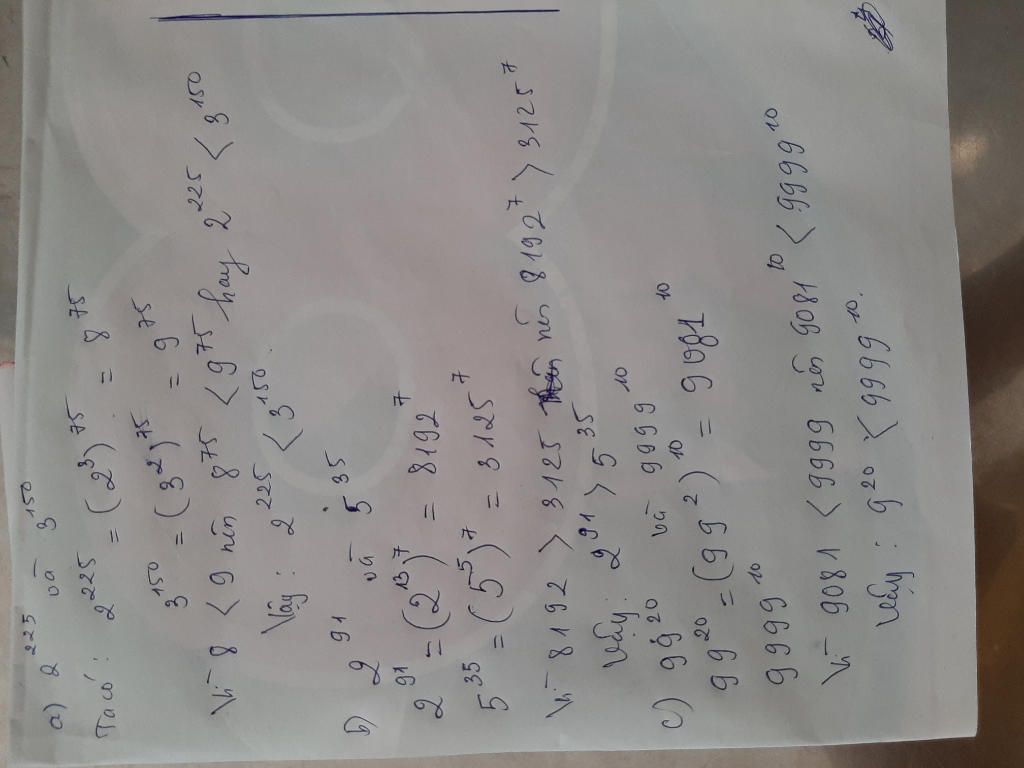 a) 2^225 và 3^150
Ta có: 2^225 = (2^3)^75 = 8^75
3^150 = (3^2)^75 = 9^75
Vì 8 < 9 nên 8^75 < 9^75 hay 2^225 < 3^150
Vậy: 2^225 < 3^150.
b) 2^91 và 5^35
2^91 = (2^13)^7 = 8192^7
5^35 = (5^5)^7 = 3125^7
Vì 8192 > 3125 nên 8192^7 > 3125^7
Vậy: 2^91 > 5^35
c) 99^20 và 9999^10
99^20 = (99^2)^10 = 9981^10
9999^10
Vì 9081 < 9999 nên 9081^10 < 9999^10
Vậy: 9^20 < 9999^10.